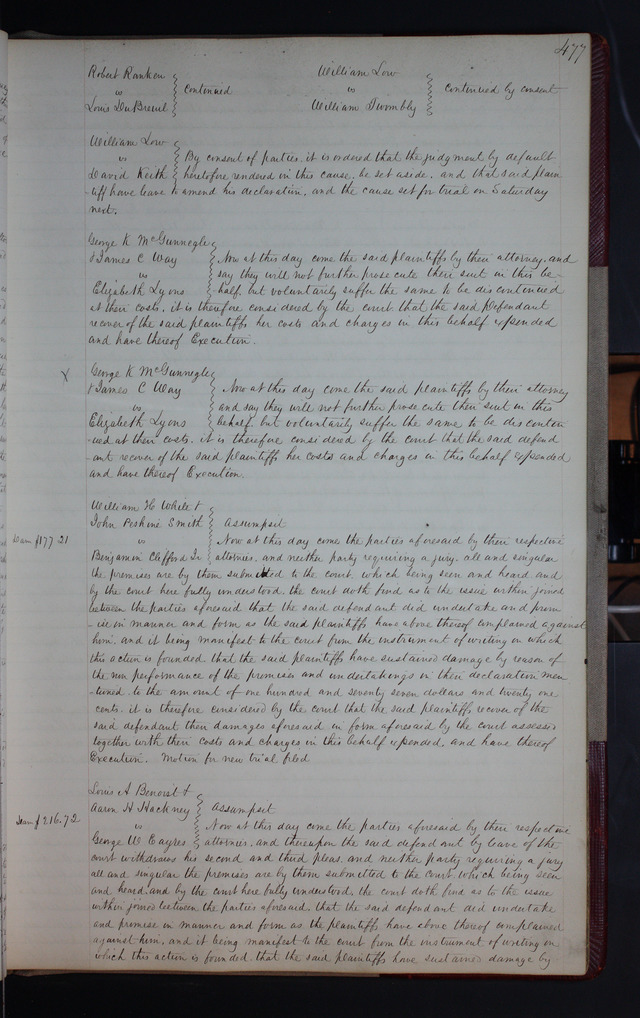 477
Robert Ranken
vs
Louis DuBreuil
Continued
William Low
vs
William Twombly
Continued by consent
William Low
vs
David Keith
By consent of parties, it is ordered that the judgment by default
heretofore rendered in this cause, be set aside, and that said plain
-tiff have leave to amend his declaration, and the cause set for trial on Saturday
next.
George K McGunnegle
& James C Way
vs
Elizabeth Lyons
Now at this day come the said plaintiffs by their attorney, and
say they will not further prosecute their suit in this be-
half, but voluntarily suffer the same to be discontinued
at their costs, it is therefore considered by the court that the said Defendant
recover of the said plaintiffs her costs and charges in this behalf expended
and have thereof Execution.
X
George K McGunnegle
& James C Way
vs
Elizabeth Lyons
Now at this day come the said plaintiffs by their attorney
and say they will not further prosecute their suit in this
behalf, but voluntarily suffer the same to be discontin
-ued at their costs, it is therefore considered by the court that the said defend
-ant recover of the said plaintiffs her costs and charges in this behalf expended
and have thereof Execution.
William H White &
John Smith
vs
Benjamin Clifford Jr
Assumpsit
$177 21
Now at this day come the parties aforesaid by their respective
attornies, and neither party requiring a jury, all and singular
the premises are by them submitted to the court, which being seen and heard and
by the court here fully understood, the court doth find as to the issue within joined
between the parties aforesaid that the said defendant did undertake and prom
-ise in manner and form as the said plaintiffs have above thereof complained against
him, and it being manifest to the court from the instrument of writing on which
this action is founded, that the said plaintiffs have sustained damage by reason of
the non performance of the promises and undertakings in their declaration men
-tioned, to the amount of one hundred and seventy seven dollars and twenty one
cents, it is therefore considered by the court that the said plaintiffs recover of the
said defendant their damages aforesaid in form aforesaid by the court assessed
together with their costs and charges in this behalf expended, and have thereof
Execution. Motion for new trial filed
Louis A Benoist &
Aaron H Hackney
vs
George W Eayres
Assumpsit
$216.72
Now at this day come the parties aforesaid by their respective
attornies, and thereupon the said defendant by leave of the
court withdraws his second and third pleas, and neither party requiring a jury
all and singular the premises are by them submitted to the court, which being seen
and heard, and by the court here fully understood, the court doth find as to the issue
within joined between the parties aforesaid, that the said defendant did undertake
and promise in manner and form as the plaintiffs have above thereof complained
against him, and it being manifest to the court from the instrument of writing on
which this action is founded that the said plaintiffs have sustained damage by